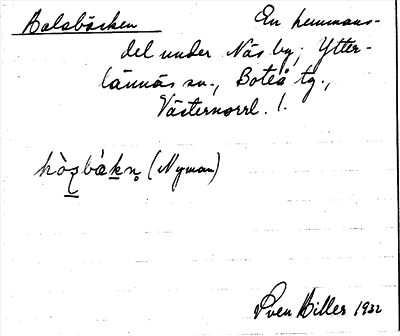 Balsbäcken En hemmans-
del under Näs by, Ytter-
lännäs sn., Boteå tg.,
Västernorrl. l.
(Nyman)
Sven Hiller 1932